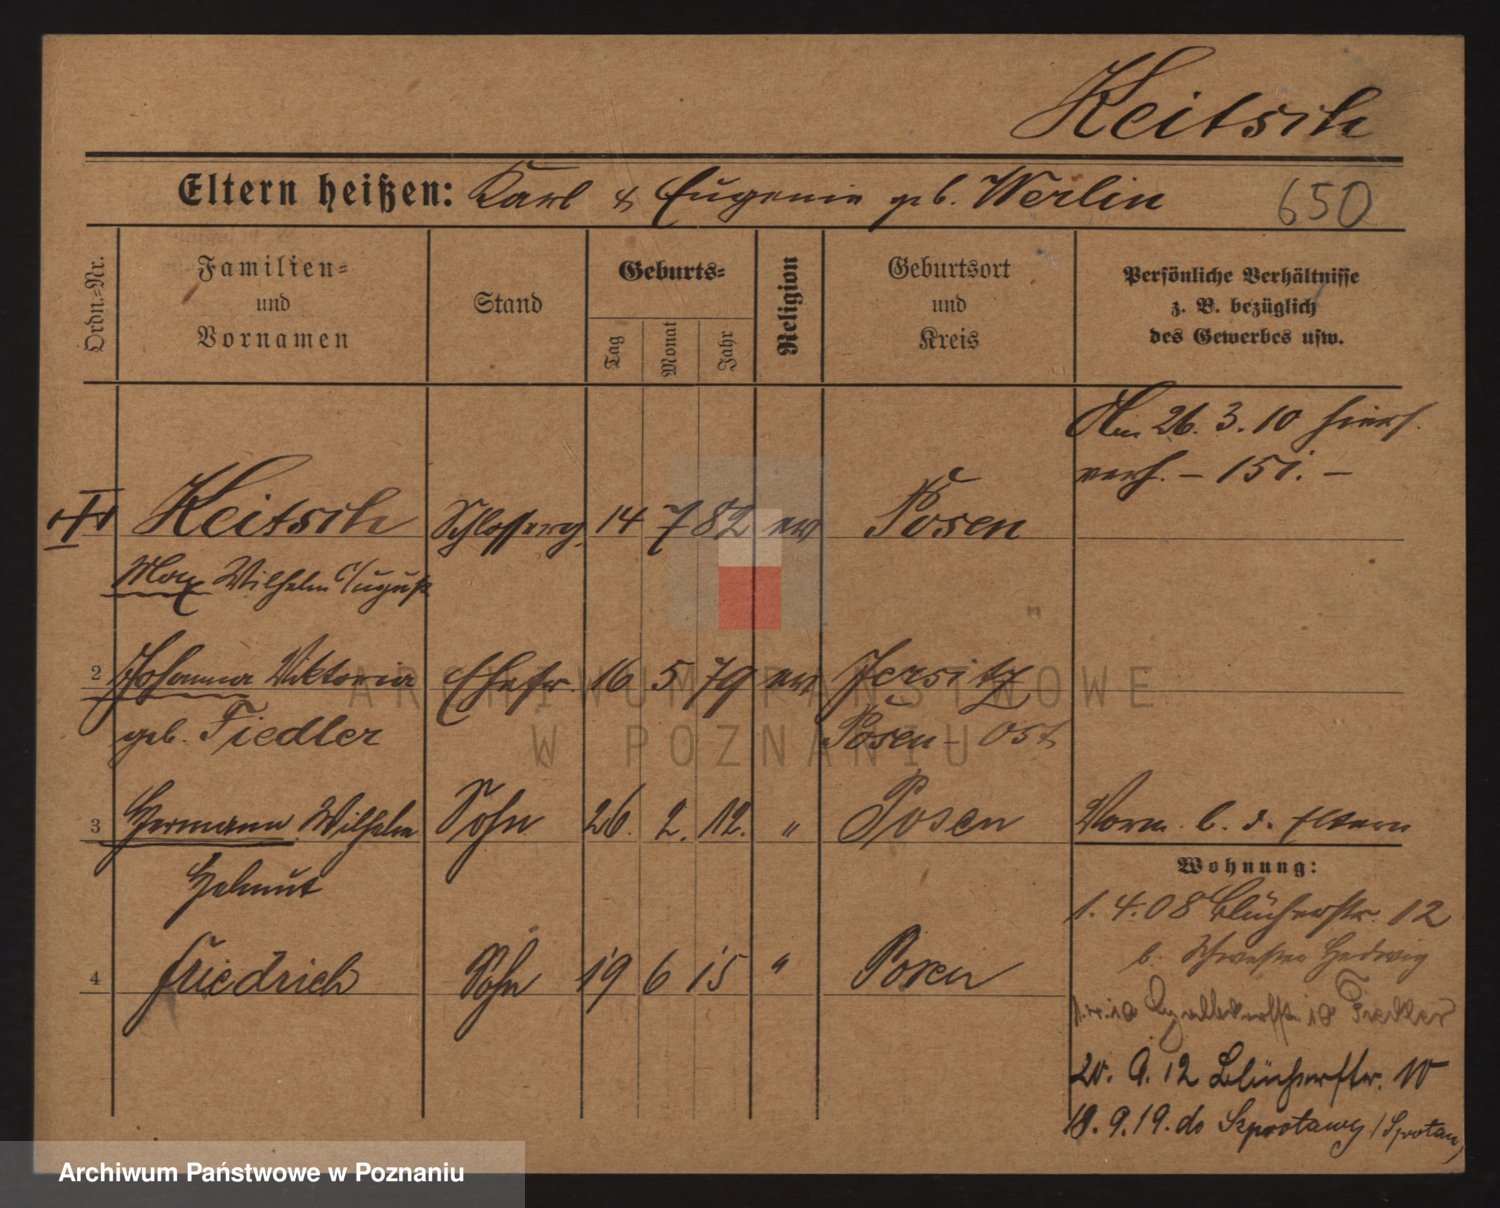 Keitsch
Eltern heißen: Karl & Eugenie geb. Werlin 650
Ordn.-Nr.
Familien-
und
Vornamen
Stand
Geburts-
Tag
Monat
Jahr
Religion
Geburtsort
und
Kreis
Persönliche Verhältnisse
z. B. bezüglich
des Gewerbes usw.
26. 3. 10 hiers.
verh. – 151. –
Keitsch Schlosserg. 14 7 82 ev Posen
Max Wilhelm August
2 Johanna Viktoria Ehefr. 16 5 79 ev Jersitz
geb. Fiedler Posen-Ost
3 Hermann Wilhelm Sohn 26. 2. 12. " Posen Vorm. b. d. Eltern
Helmut
Wohnung:
1. 4. 08 Blücherstr. 12
b. Schwester Hedwig
4 Friedrich Sohn 19 6 15 " Posen
10 Fiedler
20. 9. 12 Blücherstr. 10
18. 9. 19. do Szprotawy /Sprotau/
ARCHIWUM PAŃSTWOWE
W POZNANIU
Archiwum Państwowe w Poznaniu